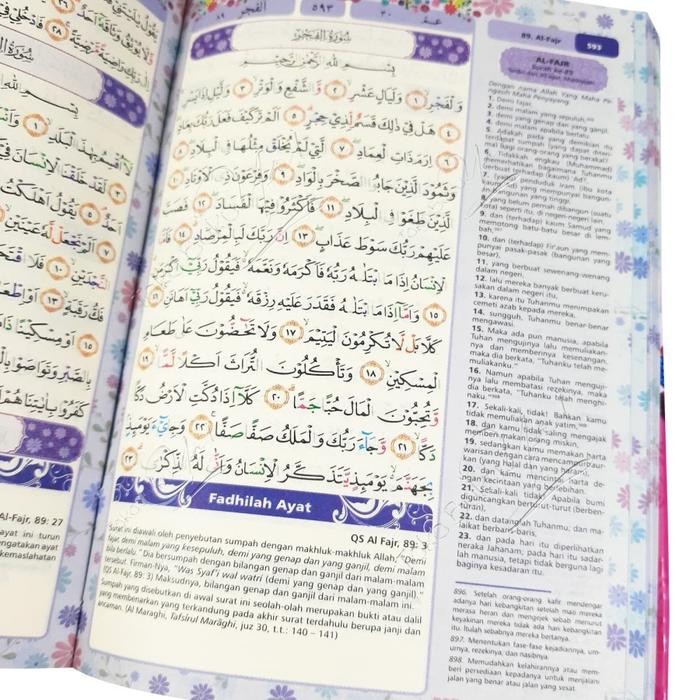 عم
٣٠
٥٩٣
٨٩
الفجر
سُوْرَةُ الْفَجْرِ
بِسْمِ اللّٰهِ الرَّحْمٰنِ الرَّحِيْمِ
وَالْفَجْرِۙ ١ وَلَيَالٍ عَشْرٍۙ ٢ وَّالشَّفْعِ وَالْوَتْرِۙ ٣ وَالَّيْلِ اِذَا يَسْرِۚ
٤ هَلْ فِيْ ذٰلِكَ قَسَمٌ لِّذِيْ حِجْرٍۗ ٥ اَلَمْ تَرَ كَيْفَ فَعَلَ رَبُّكَ بِعَادٍۖ
٦ اِرَمَ ذَاتِ الْعِمَادِۖ ٧ الَّتِيْ لَمْ يُخْلَقْ مِثْلُهَا فِى الْبِلَادِۖ ٨
وَثَمُوْدَ الَّذِيْنَ جَابُوا الصَّخْرَ بِالْوَادِۖ ٩ وَفِرْعَوْنَ ذِى الْاَوْتَادِۖ ١٠
الَّذِيْنَ طَغَوْا فِى الْبِلَادِۖ ١١ فَاَكْثَرُوْا فِيْهَا الْفَسَادَۖ ١٢ فَصَبَّ
عَلَيْهِمْ رَبُّكَ سَوْطَ عَذَابٍۖ ١٣ اِنَّ رَبَّكَ لَبِالْمِرْصَادِۗ ١٤ فَاَمَّا
الْاِنْسَانُ اِذَا مَا ابْتَلٰىهُ رَبُّهٗ فَاَكْرَمَهٗ وَنَعَّمَهٗۙ فَيَقُوْلُ رَبِّيْٓ اَكْرَمَنِۗ
١٥ وَاَمَّآ اِذَا مَا ابْتَلٰىهُ فَقَدَرَ عَلَيْهِ رِزْقَهٗۙ فَيَقُوْلُ رَبِّيْٓ اَهَانَنِۚ ١٦
كَلَّا بَلْ لَّا تُكْرِمُوْنَ الْيَتِيْمَۙ ١٧ وَلَا تَحٰۤضُّوْنَ عَلٰى طَعَامِ
الْمِسْكِيْنِۙ ١٨ وَتَأْكُلُوْنَ التُّرَاثَ اَكْلًا لَّمًّاۙ ١٩
وَّتُحِبُّوْنَ الْمَالَ حُبًّا جَمًّاۗ ٢٠ كَلَّآ اِذَا دُكَّتِ الْاَرْضُ دَكًّا
دَكًّاۙ ٢١ وَّجَاۤءَ رَبُّكَ وَالْمَلَكُ صَفًّا صَفًّاۚ ٢٢ وَجِايْۤءَ يَوْمَىِٕذٍۢ
بِجَهَنَّمَۙ يَوْمَىِٕذٍ يَّتَذَكَّرُ الْاِنْسَانُ وَاَنّٰى لَهُ الذِّكْرٰىۗ ٢٣
Fadhilah Ayat
QS Al Fajr, 89: 3
Surat ini diawali oleh penyebutan sumpah dengan makhluk-makhluk Allah, "Demi
fajar, demi malam yang kesepuluh, demi yang genap dan yang ganjil, demi malam
bila berlalu." Dia bersumpah dengan bilangan genap dan ganjil dari malam-malam
tersebut. Firman-Nya, "Was Syaf'i wal watri (demi yang genap dan yang ganjil)."
(QS Al-Fajr, 89: 3) Maksudnya, bilangan genap dan ganjil dari malam-malam ini.
Sumpah yang disebutkan di awal surat ini seolah-olah merupakan bukti atau dalil
yang membenarkan yang terkandung pada akhir surat terdahulu berupa janji dan
ancaman. (Al Maraghi, Tafsîrul Marâghi, juz 30, t.t.: 140 – 141)
89. Al-Fajr
593
AL-FAJR
Surah ke-89
Dengan nama Allah Yang Maha Pe-
ngasih Maha Penyayang.
1. Demi fajar,
2. demi malam yang sepuluh,
3. demi yang genap dan yang ganjil,
4. demi malam apabila berlalu.
5. Adakah pada yang demikian itu
terdapat sumpah (yang dapat diteri-
ma) bagi orang-orang yang berakal?
6. Tidakkah engkau (Muhammad)
memerhatikan bagaimana Tuhanmu
berbuat terhadap (kaum) Ad?
7. (yaitu) penduduk Iram (ibu kota
kaum Ad) yang mempunyai bangun-
an-bangunan yang tinggi,
8. yang belum pernah dibangun (suatu
kota) seperti itu, di negeri-negeri lain,
9. dan (terhadap) kaum Samud yang
memotong batu-batu besar di lem-
bah,
10. dan (terhadap) Fir'aun yang mem-
punyai pasak-pasak (bangunan yang
besar),
11. yang berbuat sewenang-wenang
dalam negeri,
12. lalu mereka banyak berbuat keru-
sakan dalam negeri itu,
13. karena itu Tuhanmu menimpakan
cemeti azab kepada mereka,
14. sungguh, Tuhanmu benar-benar
mengawasi.
15. Maka ada pun manusia, apabila
Tuhan mengujinya lalu memuliakan-
nya dan memberinya kesenangan,
maka dia berkata, "Tuhanku telah me-
muliakanku."
16. Namun apabila Tuhan menguji-
nya lalu membatasi rezekinya, maka
dia berkata, "Tuhanku telah menghi-
naku."
17. Sekali-kali, tidak! Bahkan kamu
tidak memuliakan anak yatim,
18. dan kamu tidak saling mengajak
memberi makan orang miskin,
19. sedangkan kamu memakan harta
warisan dengan cara mencampurbaur-
kan (yang halal dan yang haram),
20. dan kamu mencintai harta de-
ngan kecintaan yang berlebihan.
21. Sekali-kali tidak! Apabila bumi
diguncangkan berturut-turut (berben-
turan),
22. dan datanglah Tuhanmu; dan ma-
laikat berbaris-baris,
23. dan pada hari itu diperlihatkan
neraka Jahanam; pada hari itu sadar-
lah manusia, tetapi tidak berguna lagi
baginya kesadaran itu.
896. Setelah orang-orang kafir mendengar
adanya hari kebangkitan setelah mati mereka
merasa heran dan mengejek sebab menurut
keyakinan mereka tidak ada hari kebangkitan
itu. Itulah sebabnya mereka bertanya.
897. Menentukan fase-fase kejadiannya, um-
urnya, rezekinya, dan nasibnya.
898. Memudahkan kelahirannya atau mem-
beri persediaan kepadanya untuk menjalani
jalan yang benar atau jalan yang sesat
Al-Fajr, 89: 27
ayat ini turun